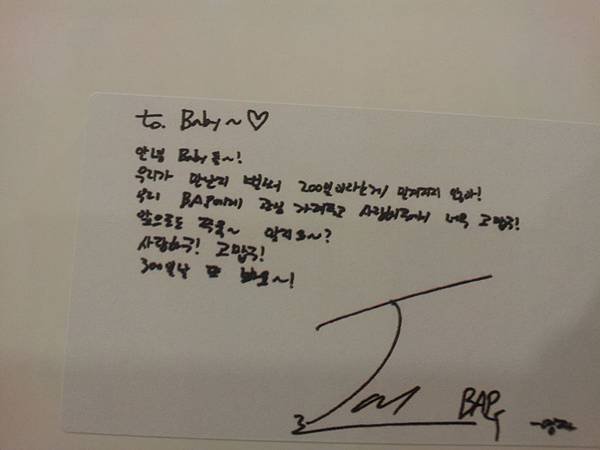 to. Baby~♡
안녕 Baby들~!
우리가 만난지 벌써 200일이라는게 믿겨지지 않아!
우리 BAP에게 관심 가져주고 사랑해줘서 너무 고맙구!
앞으로도 쭈욱~ 알지요~?
사랑하구! 고맙구!
300일날 또 봐요~!
BAP